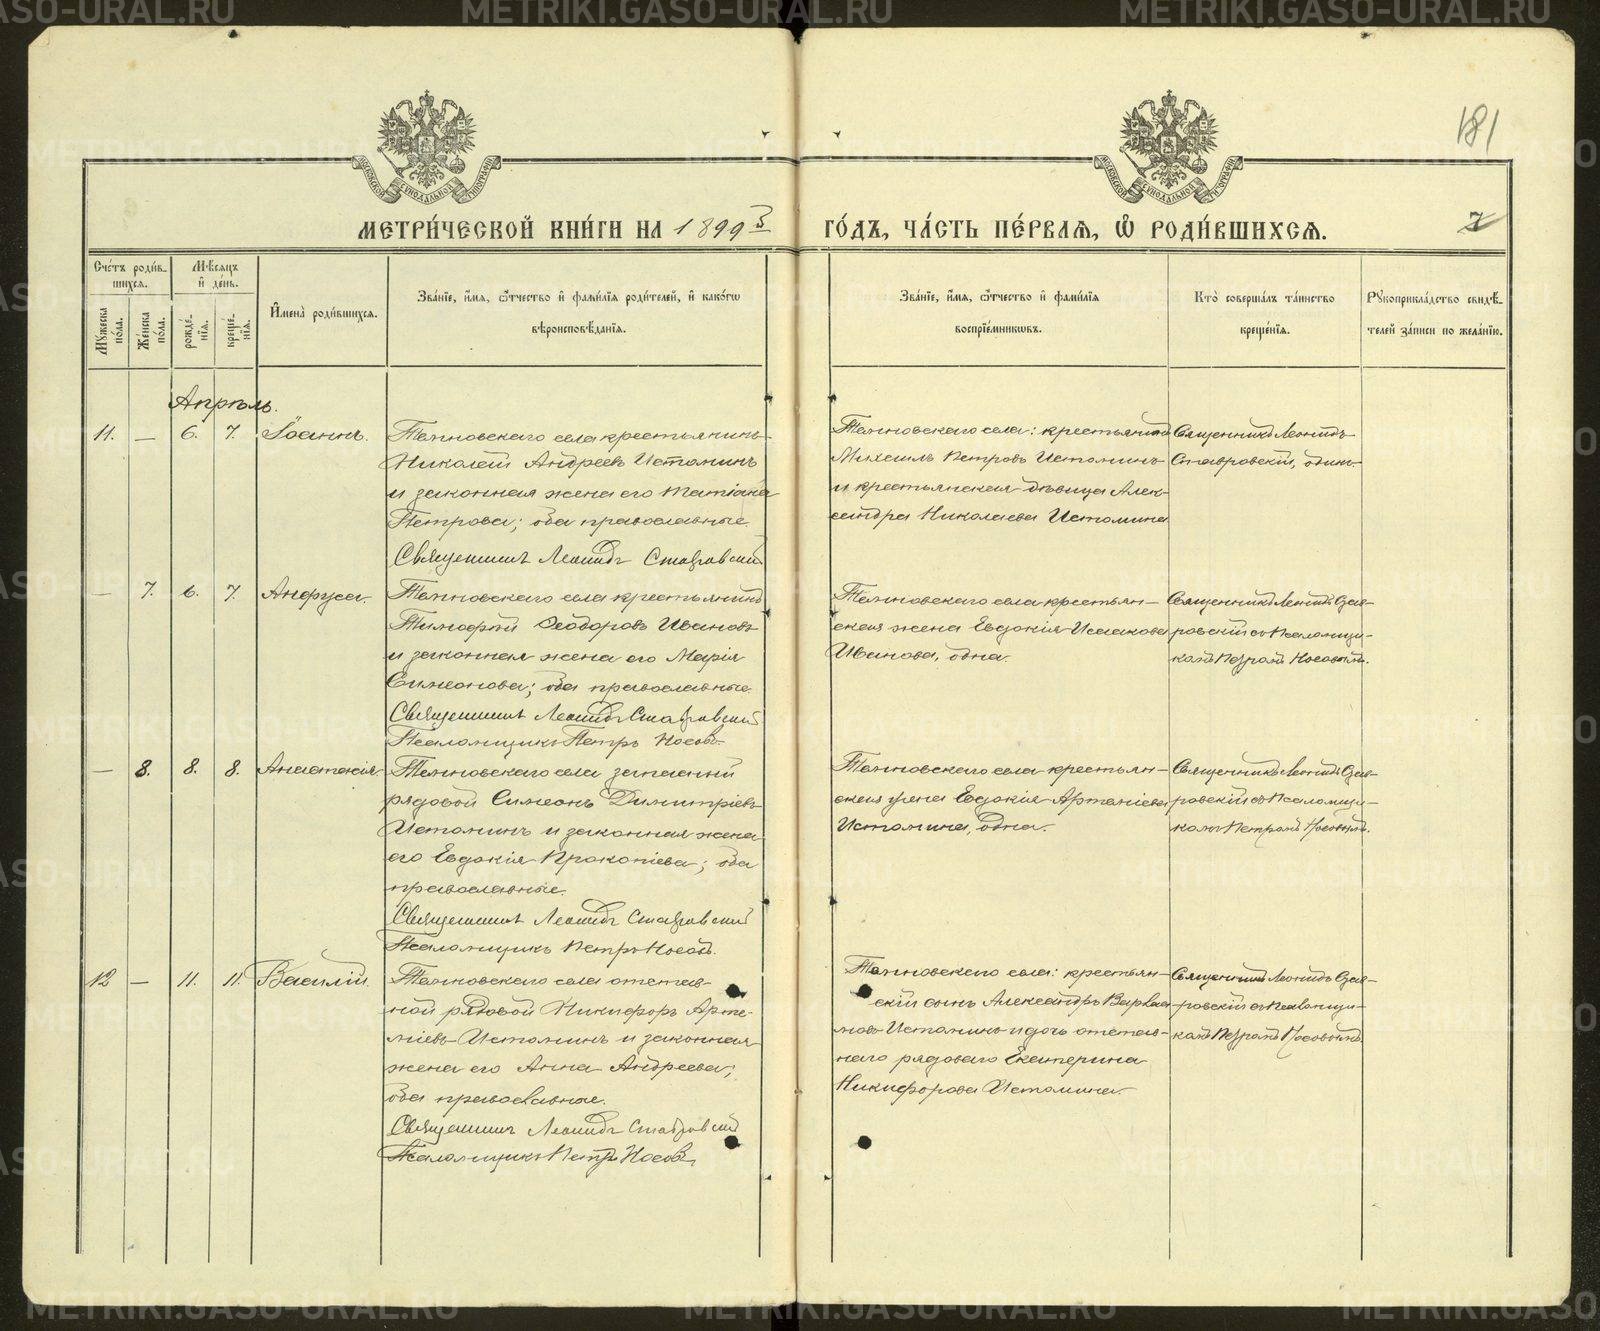 181
МЕТРИ́ЧЕСКОЙ КНИ́ГИ НА 1899 ГО́ДЪ, ЧА́СТЬ ПЕ́РВАЯ, Ѽ РОДИ́ВШИХСЯ.
7
Сче́тъ роди́в-
шихся.
Мꙋ́жеска по́ла.
Же́нска по́ла.
Мѣ́сяцъ и҆ де́нь.
рожде́нїя.
креще́нїя.
И҆мена̀ роди́вшихся.
Зва́нїе, и҆́мя, ѻ҆́тчество и҆ фами́лїя роди́телей, и҆ како́гѡ
вѣроисповѣ́данїя.
Зва́нїе, и҆́мя, ѻ҆́тчество и҆ фами́лїя
воспрїе́мникѡвъ.
Кто̀ соверша́лъ та́инство
креще́нїя.
Рꙋкоприкла́дство свидѣ́-
телей за́писи по жела́нїю.
Апрѣль.
11. — 6. 7. Іоаннъ.
Темновскаго села крестьянинъ
Николай Андреевъ Истоминъ
и законная жена его Татіана
Петрова; оба православные.
Священникъ Леонидъ Ставровскій
Темновскаго села: крестьянинъ
Михаилъ Петровъ Истоминъ
и крестьянская дѣвица Алек-
сандра Николаева Истомина
Священникъ Леонидъ
Ставровскій, одинъ.
— 7. 6. 7. Анфуса.
Темновскаго села крестьянинъ
Тимофей Ѳеодоровъ Ивановъ
и законная жена его Марія
Симеонова; оба православные.
Священникъ Леонидъ Ставровскій
Псаломщикъ Петръ Носовъ.
Темновскаго села крестьян-
ская жена Евдокія Исаакова
Иванова, одна.
Священникъ Леонидъ Став-
ровскій съ Псаломщи-
комъ Петромъ Носовымъ.
— 8. 8. 8. Анастасія
Темновскаго села запасный
рядовой Симеонъ Димитріевъ
Истоминъ и законная жена
его Евдокія Прокопіева; оба
православные.
Священникъ Леонидъ Ставровскій
Псаломщикъ Петръ Носовъ.
Темновскаго села крестьян-
ская жена Евдокія Артеміева
Истомина, одна.
Священникъ Леонидъ Став-
ровскій съ Псаломщи-
комъ Петромъ Носовымъ.
12 — 11. 11. Василій.
Темновскаго села отстав-
ной рядовой Никифоръ Арте-
міевъ Истоминъ и законная
жена его Анна Андреева;
оба православные.
Священникъ Леонидъ Ставровскій
Псаломщикъ Петръ Носовъ.
Темновскаго села: крестьян-
скій сынъ Александръ Варлаа-
мовъ Истоминъ и дочь отстав-
наго рядоваго Екатерина
Никифорова Истомина.
Священникъ Леонидъ Став-
ровскій съ Псаломщи-
комъ Петромъ Носовымъ.
METRIKI.GASO-URAL.RU